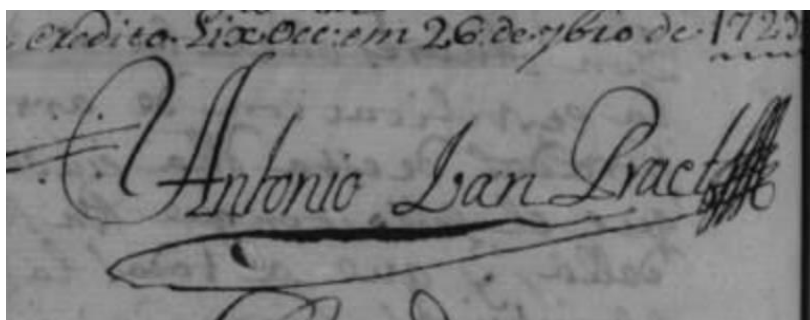 credito. Lix.Occ: em 26 de 7bro de 1723
Antonio Lan Pract